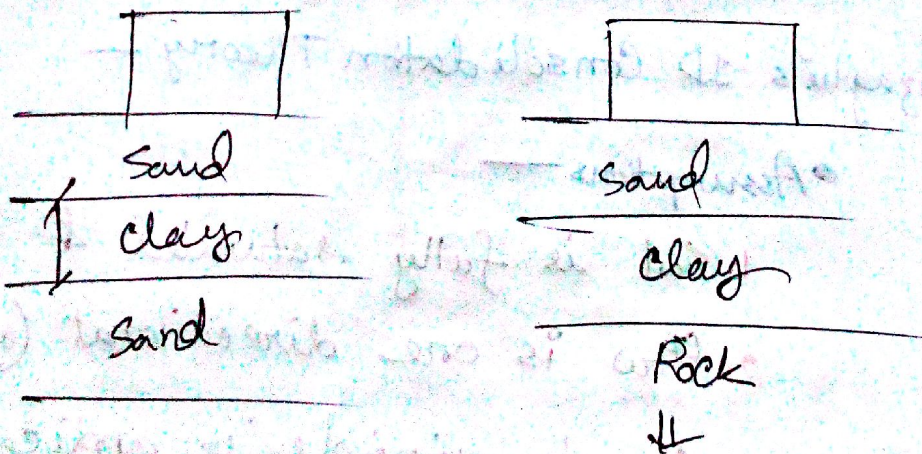 Sand
clay
Sand
Sand
Clay
Rock
⇓